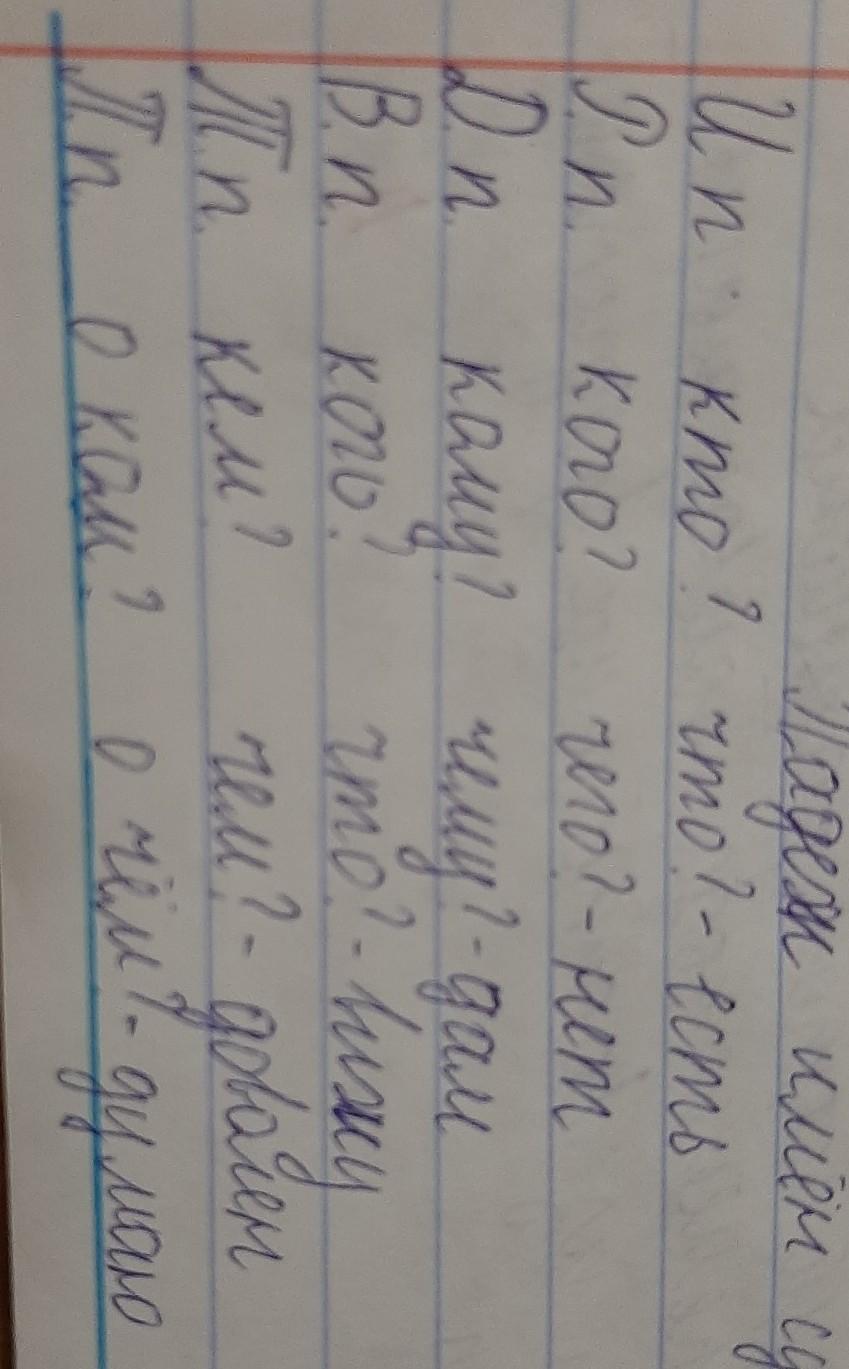 Падеж имён
И.п. кто? что? - есть
Р.п. кого? чего? - нет
Д.п. кому? чему? - дам
В.п. кого? что? - вижу
Т.п. кем? чем? - доволен
П.п. о ком? о чём? - думаю